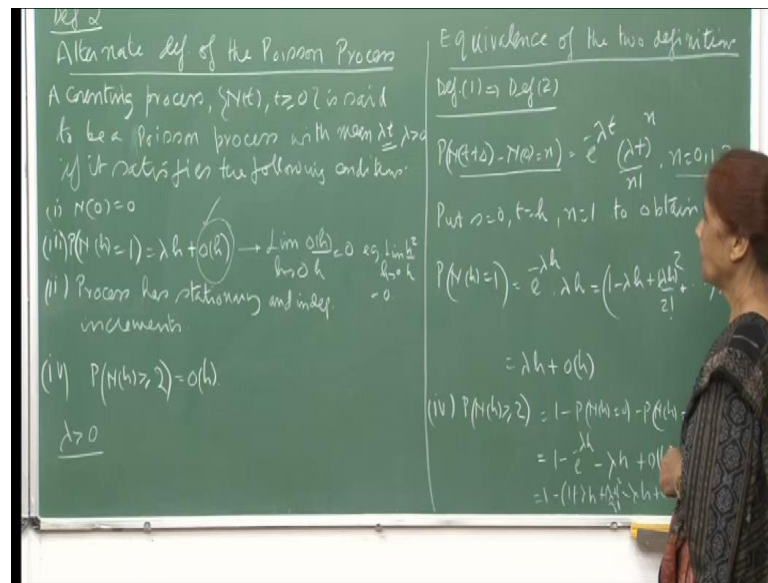 Def 2
Alternate def. of the Poisson Process
A counting process, {N(t), t≥0} is said
to be a Poisson process with mean λt, λ>0
if it satisfies the following conditions:
(i) N(0)=0
(iii) P(N(h)=1) = λh + o(h) → Lim o(h)/h = 0 eg Lim h²/h = 0
h→0 h→0
(ii) Process has stationary and indep.
increments.
(iv) P(N(h)≥2) = o(h).
λ>0
Equivalence of the two definitions
Def.(1) ⇒ Def(2)
P(N(t+s) - N(s)=n) = e^{-λt} (λt)^n / n!, n=0,1,2
Put s=0, t=h, n=1 to obtain
P(N(h)=1) = e^{-λh} · λh = (1-λh+(λh)²/2!+
= λh + o(h)
(iv) P(N(h)≥2) = 1 - P(N(h)=0) - P(N(h)
= 1 - e^{-λh} - λh + o(h)
= 1 - (1+λh+(λh)²/2! - λh +